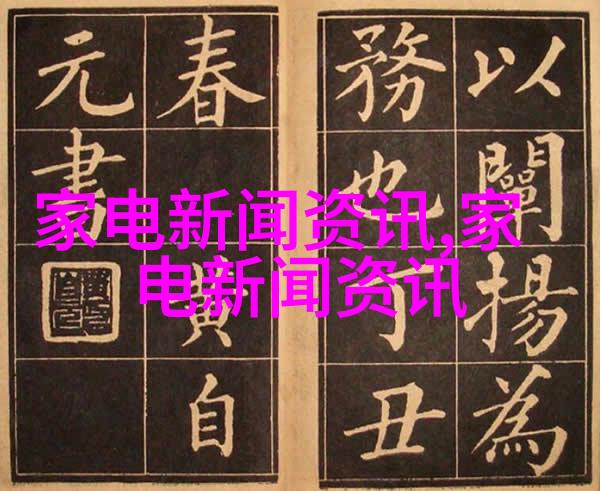 家电新闻资讯,家
电新闻资讯
以闡揚為
務也丁丑
春黃自
元書